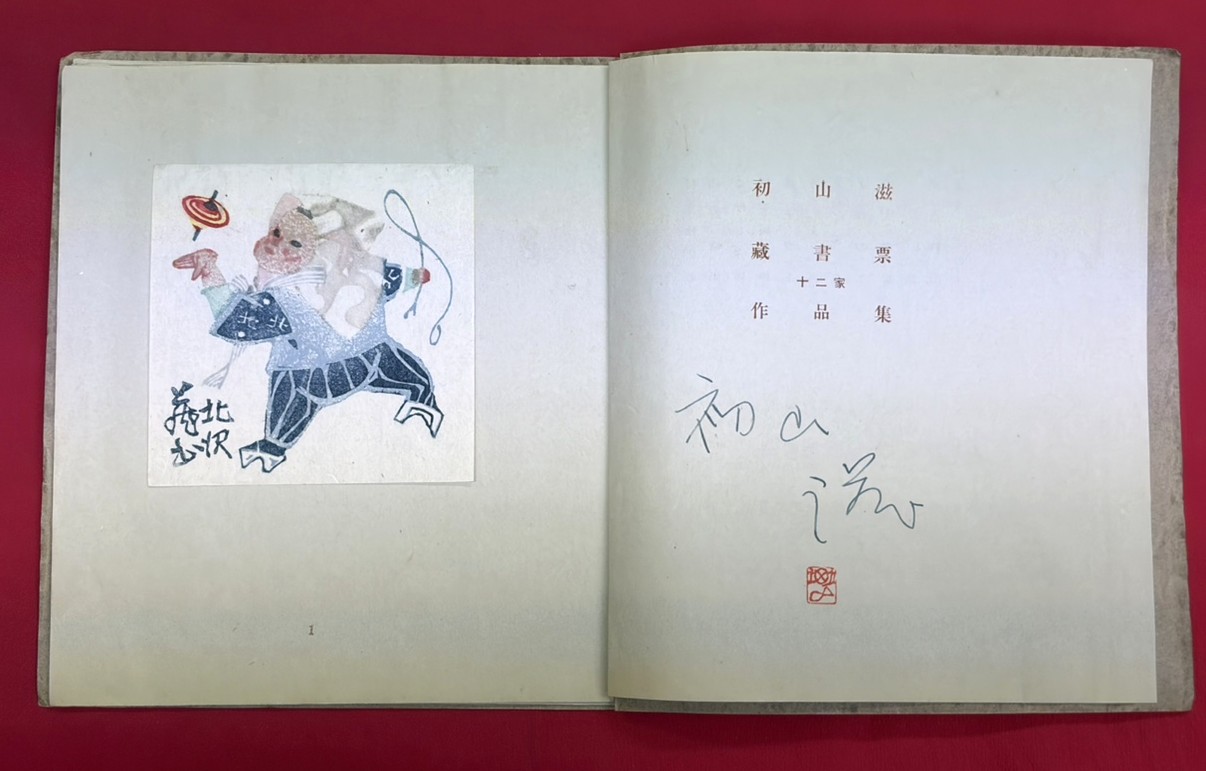 北沢
蔵書
1
初山滋
藏書票
十二家
作品集
初山
滋